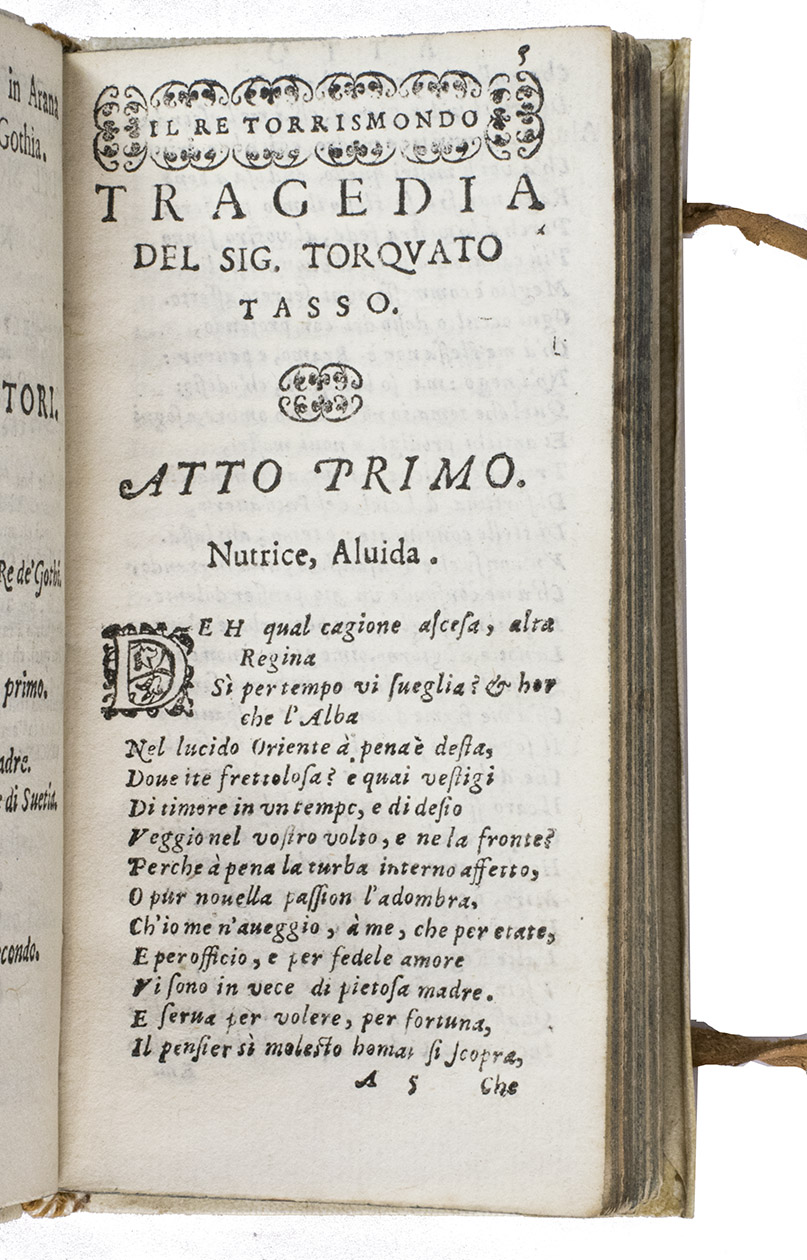 in Arana
Gothia.
TORI.
Re de'Gothi.
primo.
adre.
e di Suetia.
econdo.
5
IL RE TORRISMONDO
TRAGEDIA
DEL SIG. TORQVATO
TASSO.
ATTO PRIMO.
Nutrice, Aluida.
DEH qual cagione ascosa, alta
Regina
Sì per tempo vi sueglia? & hor
che l'Alba
Nel lucido Oriente à pena è desta,
Doue ite frettolosa? e quai vestigi
Di timore in vn tempo, e di desio
Veggio nel vostro volto, e ne la fronte?
Perche à pena la turba interno affetto,
O pur nouella passion l'adombra,
Ch'io me n'aueggio, à me, che per etate,
E per officio, e per fedele amore
Vi sono in vece di pietosa madre.
E serua per volere, per fortuna,
Il pensier sì molesto homai si scopra,
A 5 Che